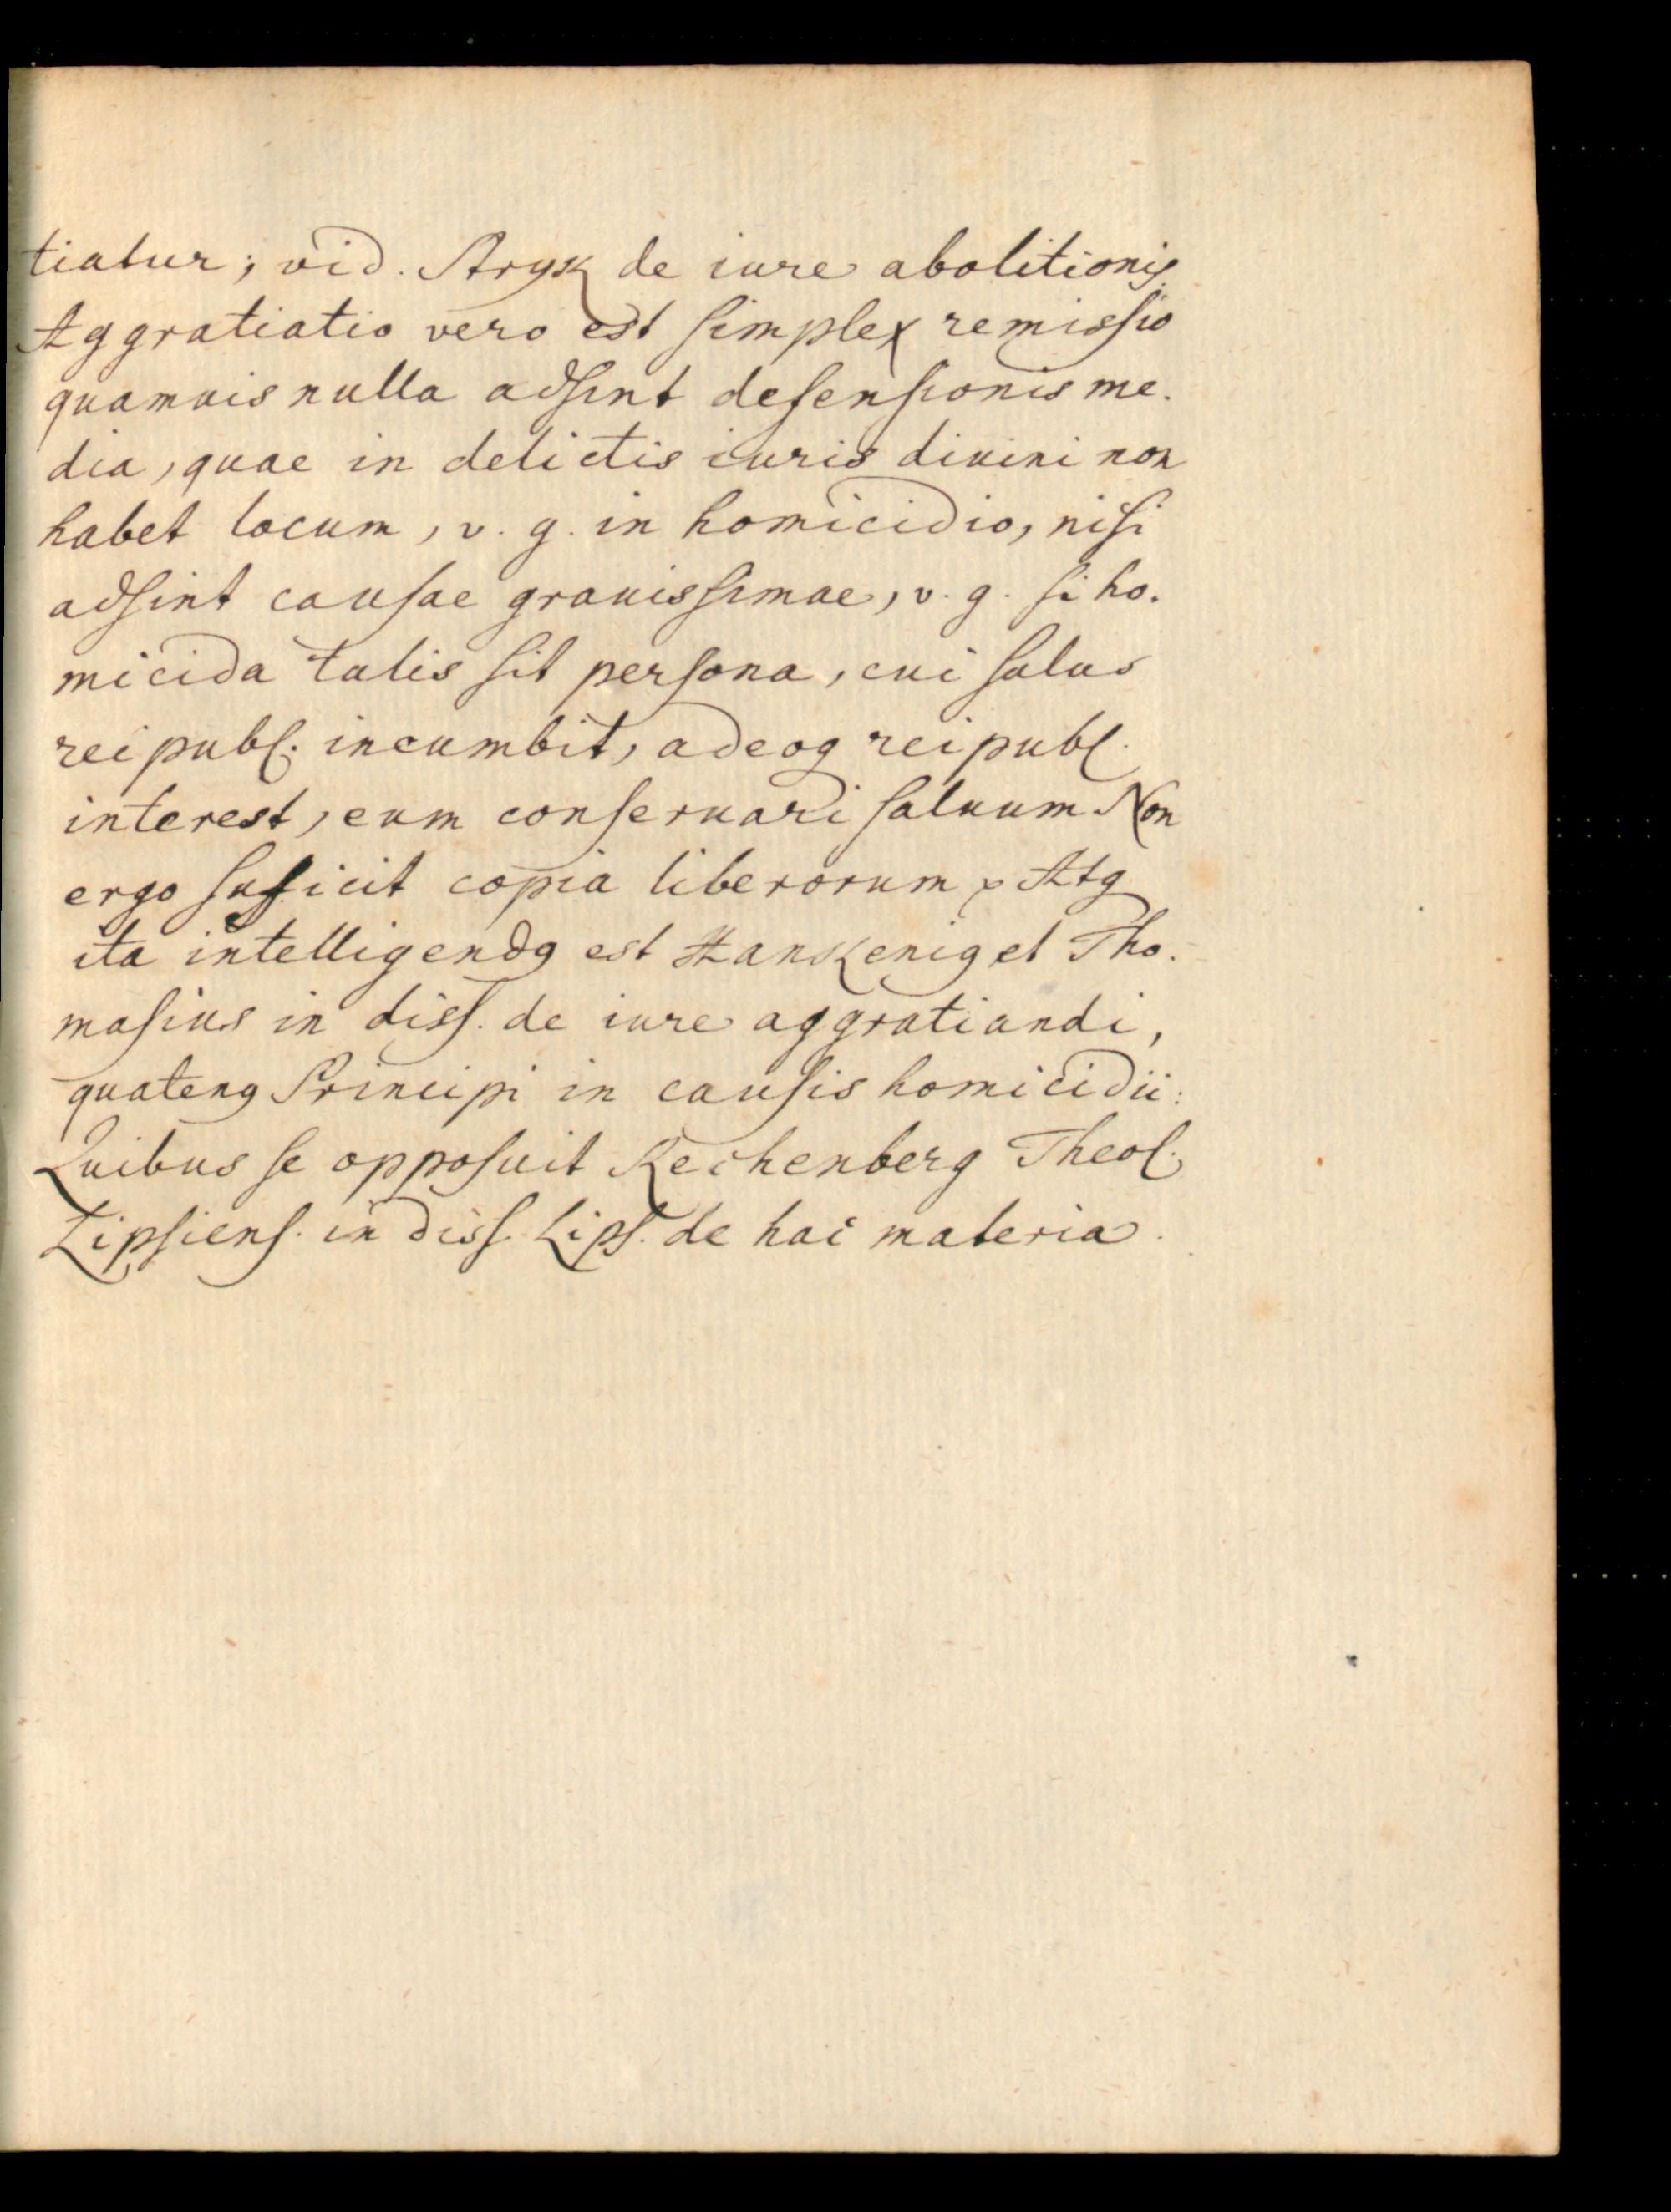 tiatur; vid. Stryk de iure abolitionis.
Aggratiatio vero est ſimplex remisſio
quamuis nulla adſint defenſionis me-
dia, quae in delictis iuris diuini non
habet locum, v. g. in homicidio, niſi
adſint cauſae grauisſimae, v. g. ſi ho-
micida talis ſit perſona, cui ſalus
reipubl. incumbit, adeoq reipubl.
interest, eum conſeruari ſaluum Non
ergo ſuficit copia liberorum Atq
ita intelligendꝯ est et Tho-
maſius in disſ. de iure aggratiandi,
quatenꝯ Principi in cauſis homicidii:
Quibus ſe oppoſuit Rechenberg Theol.
Lipſienſ. in disſ. Lipſ. de hac materia.